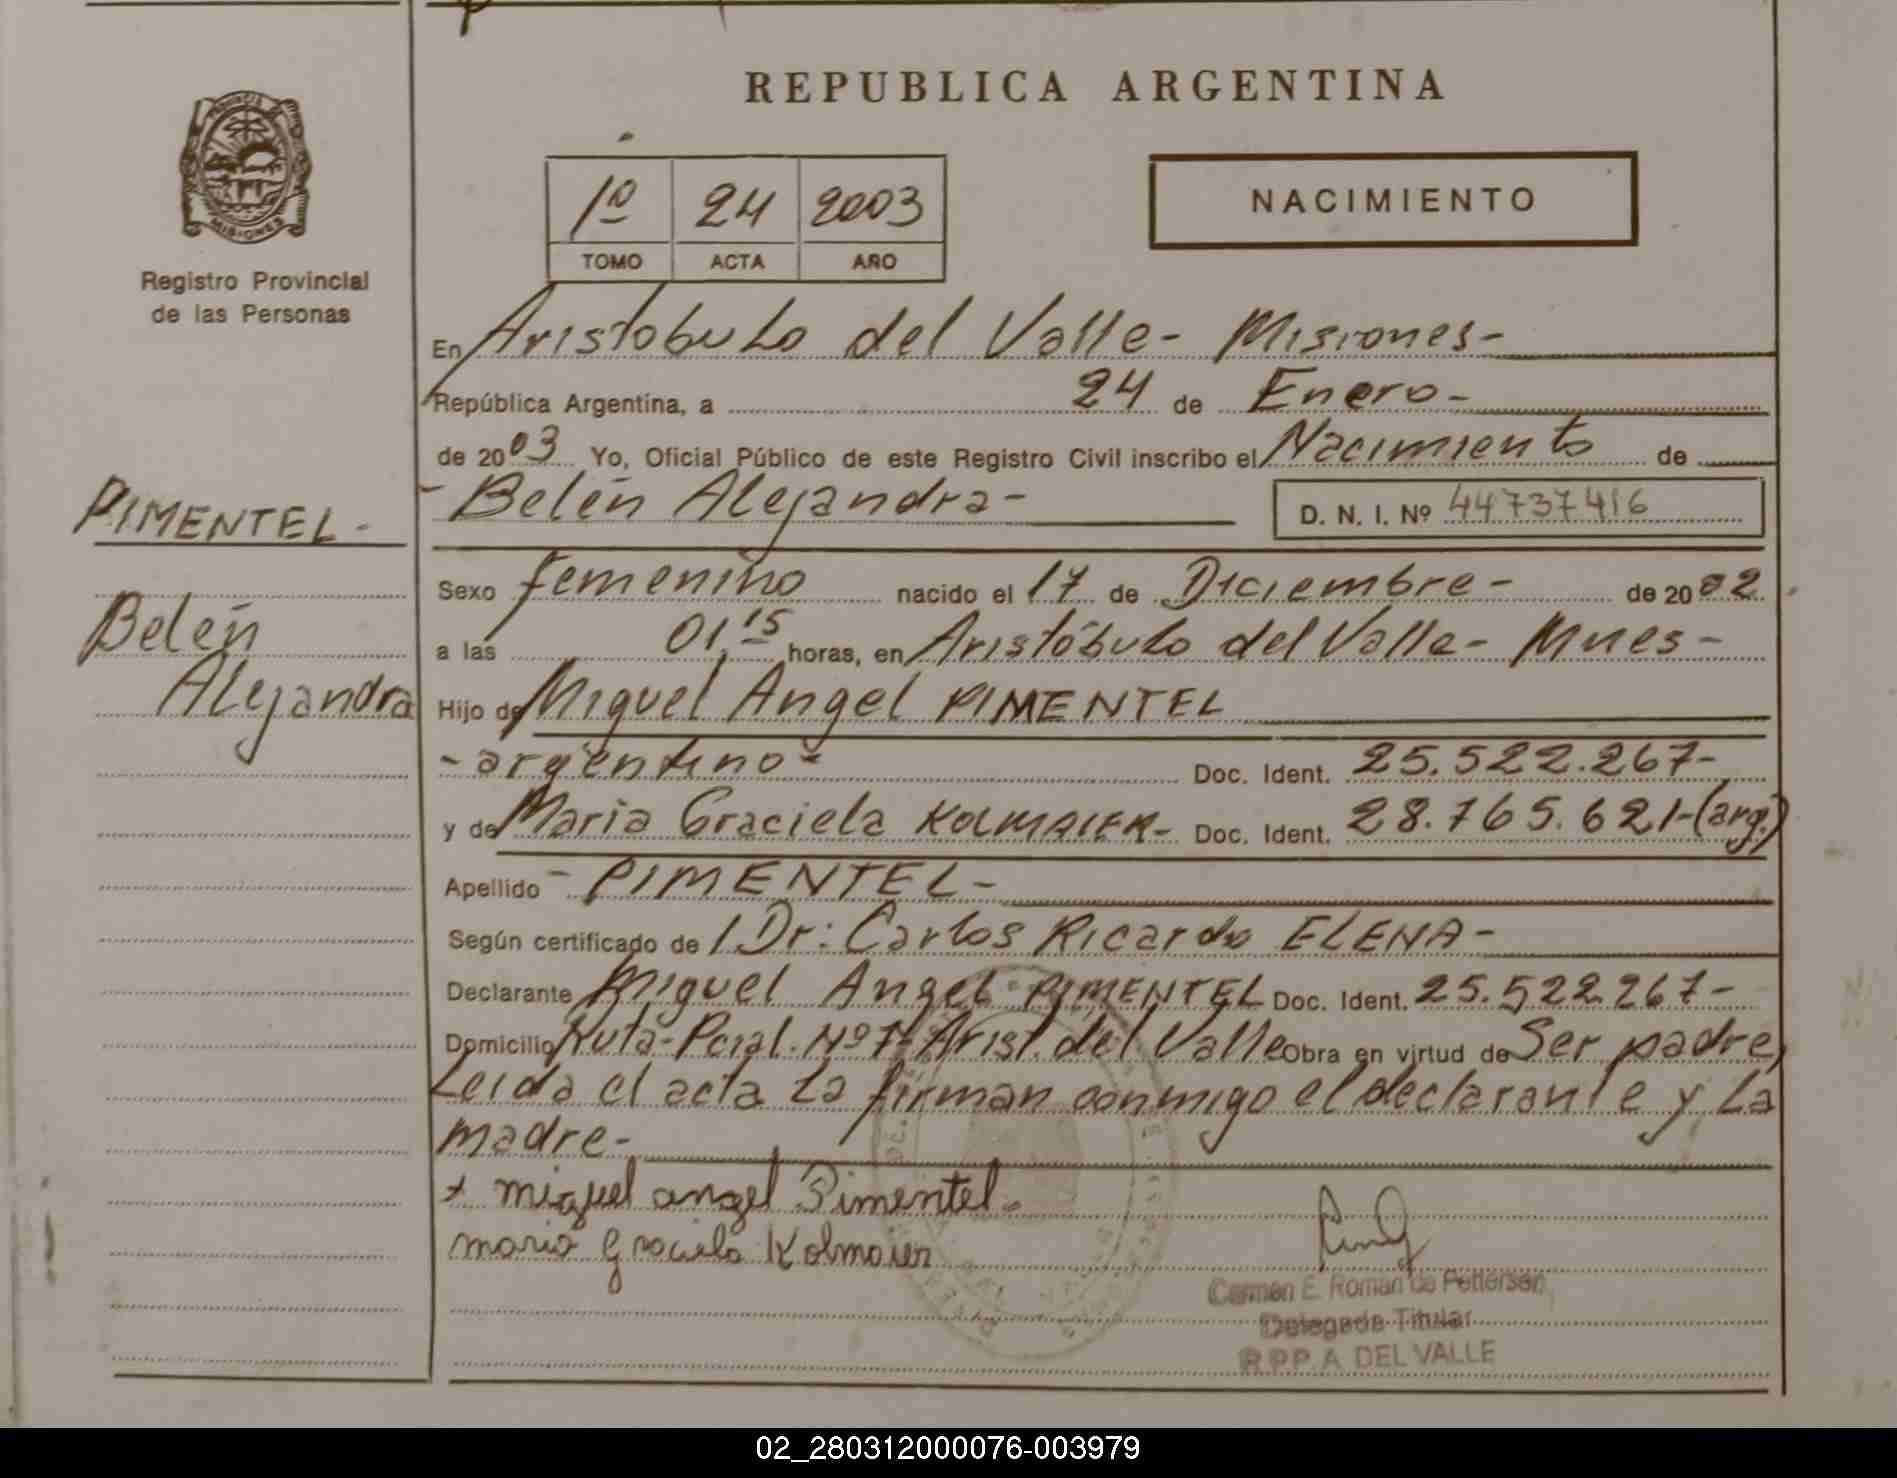 REPUBLICA ARGENTINA
PROVINCIA DE
MISIONES
Registro Provincial
de las Personas
1º 24 2003
TOMO ACTA AÑO
NACIMIENTO
En Aristobulo del Valle- Misiones-
República Argentina, a 24 de Enero-
de 2003 Yo, Oficial Público de este Registro Civil inscribo el Nacimiento de
- Belén Alejandra- D. N. I. Nº 44737416
PIMENTEL-
Belén
Alejandra
Sexo femenino nacido el 17 de Diciembre- de 2002
a las 01,15 horas, en Aristóbulo del Valle- Mnes-
Hijo de Miguel Angel PIMENTEL
- argentino- Doc. Ident. 25.522.267-
y de Maria Graciela KOLMAIER- Doc. Ident. 28.765.621-(arg.)
Apellido - PIMENTEL-
Según certificado de l Dr: Carlos Ricardo ELENA-
Declarante Miguel Angel PIMENTEL Doc. Ident. 25.522.267-
Domicilio Ruta-Pcial. Nº 7- Arist. del Valle Obra en virtud de Ser padre,
Leida el acta La firman conmigo el declarante y La
madre-
x miguel angel Pimentel.
maria Graciela Kolmaier
Carmen E. Roman de Pettersen
Delegada Titular
R.P.P. A. DEL VALLE
02_280312000076-003979